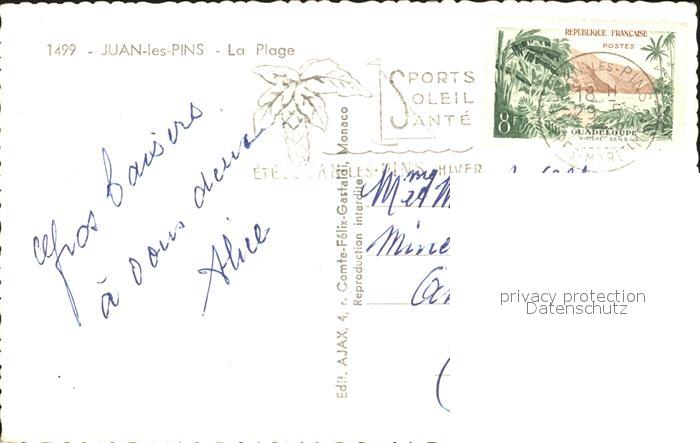 1499 - JUAN-les-PINS - La Plage
REPUBLIQUE FRANÇAISE
POSTES
8F
GUADELOUPE
RIVIÈRE SENS
JUAN-LES-PINS
18 H
SPORTS
SOLEIL
SANTÉ
ÉTÉ JUAN-LES-PINS HIVER
Gros baisers
à vous deux
Alice
Edit. AJAX, 4, r. Comte-Félix-Gastaldi, Monaco
Reproduction interdite
privacy protection
Datenschutz